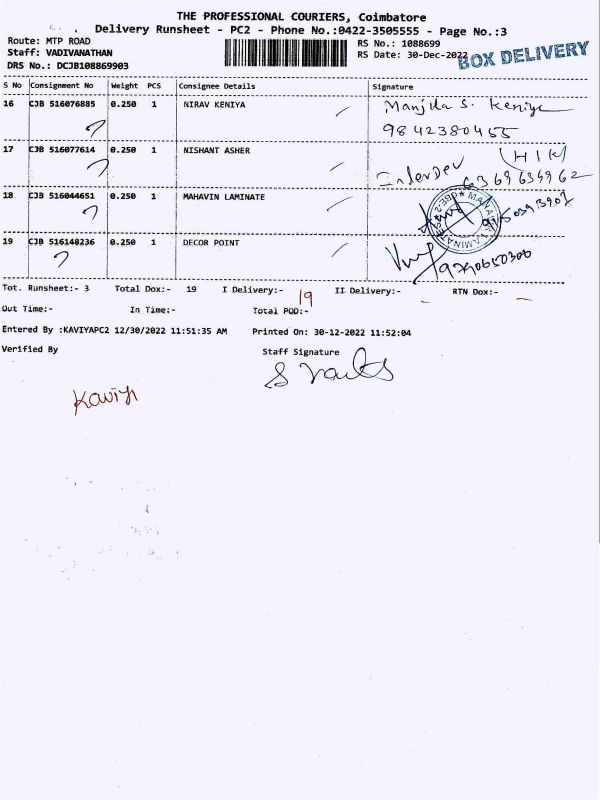 THE PROFESSIONAL COURIERS, Coimbatore
Delivery Runsheet - PC2 - Phone No.:0422-3505555 - Page No.:3
Route: MTP ROAD
RS No.: 1088699
Staff: VADIVANATHAN
RS Date: 30-Dec-2022
BOX DELIVERY
DRS No.: DCJB108869903
S No Consignment No Weight PCS Consignee Details Signature
16 CJB 516076885 0.250 1 NIRAV KENIYA Manjula S. Keniya
9842380455
17 CJB 516077614 0.250 1 NISHANT ASHER
6369639962
18 CJB 516044651 0.250 1 MAHAVIN LAMINATE
19 CJB 516148236 0.250 1 DECOR POINT
9790650300
Tot. Runsheet:- 3 Total Dox:- 19 I Delivery:- 19 II Delivery:- RTN Dox:-
Out Time:- In Time:- Total POD:-
Entered By :KAVIYAPC2 12/30/2022 11:51:35 AM Printed On: 30-12-2022 11:52:04
Verified By Staff Signature
Kaviya